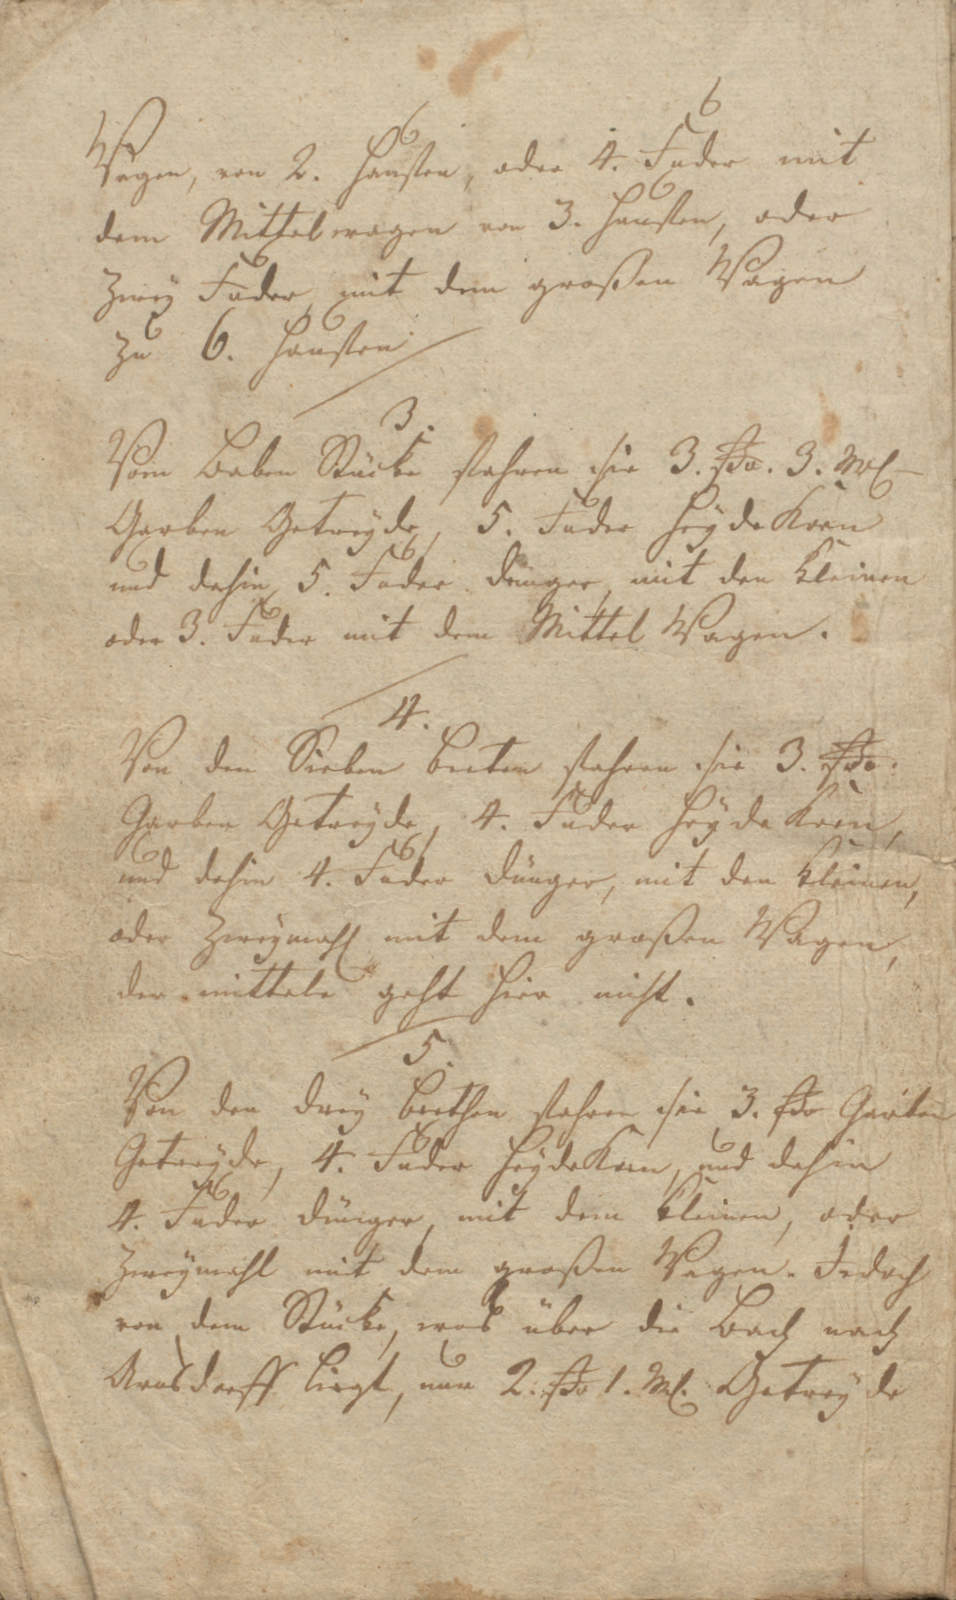 Wagen, von 2. Hausten, oder 4. Fuder mit
dem Mittelwagen von 3. Hausten, oder
zwey Fuder mit dem großen Wagen
zu 6. Hausten
3.
Vom Stücke fahren sie 3. ßo. 3. Ml
Garben Getreyde, 5. Fuder HeydeKorn
und dahin 5. Fuder Dünger mit den Kleinen
oder 3. Fuder mit dem Mittel Wagen.
4.
Von den Sieben Beeten fahren sie 3. ßo.
Garben Getreyde, 4. Fuder HeydeKorn,
und dahin 4. Fuder Dünger, mit den kleinen,
oder Zweymahl mit dem großen Wagen,
der mittele geht hier nicht.
5.
Von den drey Beethen fahren sie 3. ßo Garben
Getreyde, 4. Fuder HeydeKorn, und dahin
4. Fuder Dünger mit dem kleinen, oder
Zweymahl mit dem großen Wagen. Jedoch
von dem Stücke, was über die Bach nach
Arnsdorff liegt, nur 2. ßo 1. Ml. Getreyde